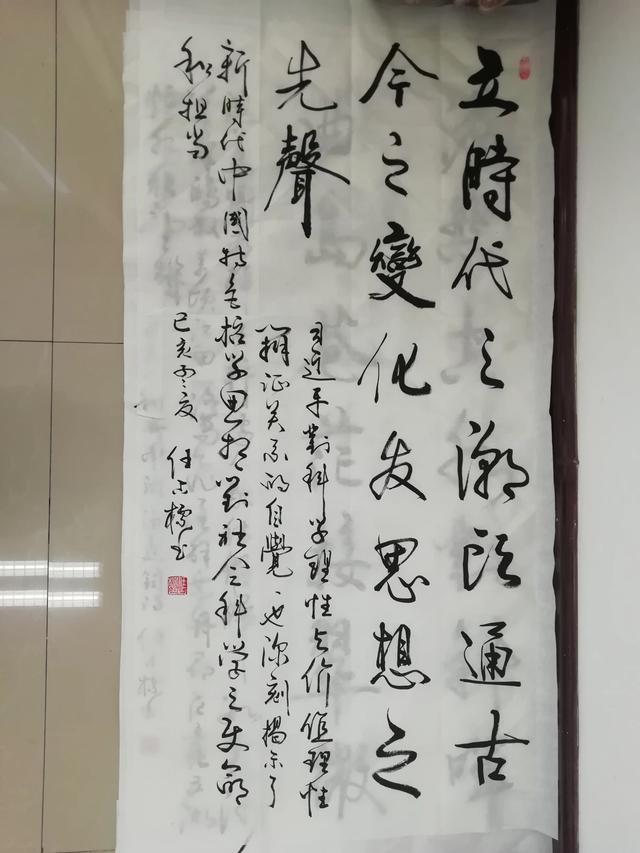 立時代之潮頭通古
今之變化发思想之
先聲
习近平對科学理性与价值理性
辯证关系的自覺也深刻揭示了
新時代中国特色哲学思想對社会科学之使命
和担当
己亥
任